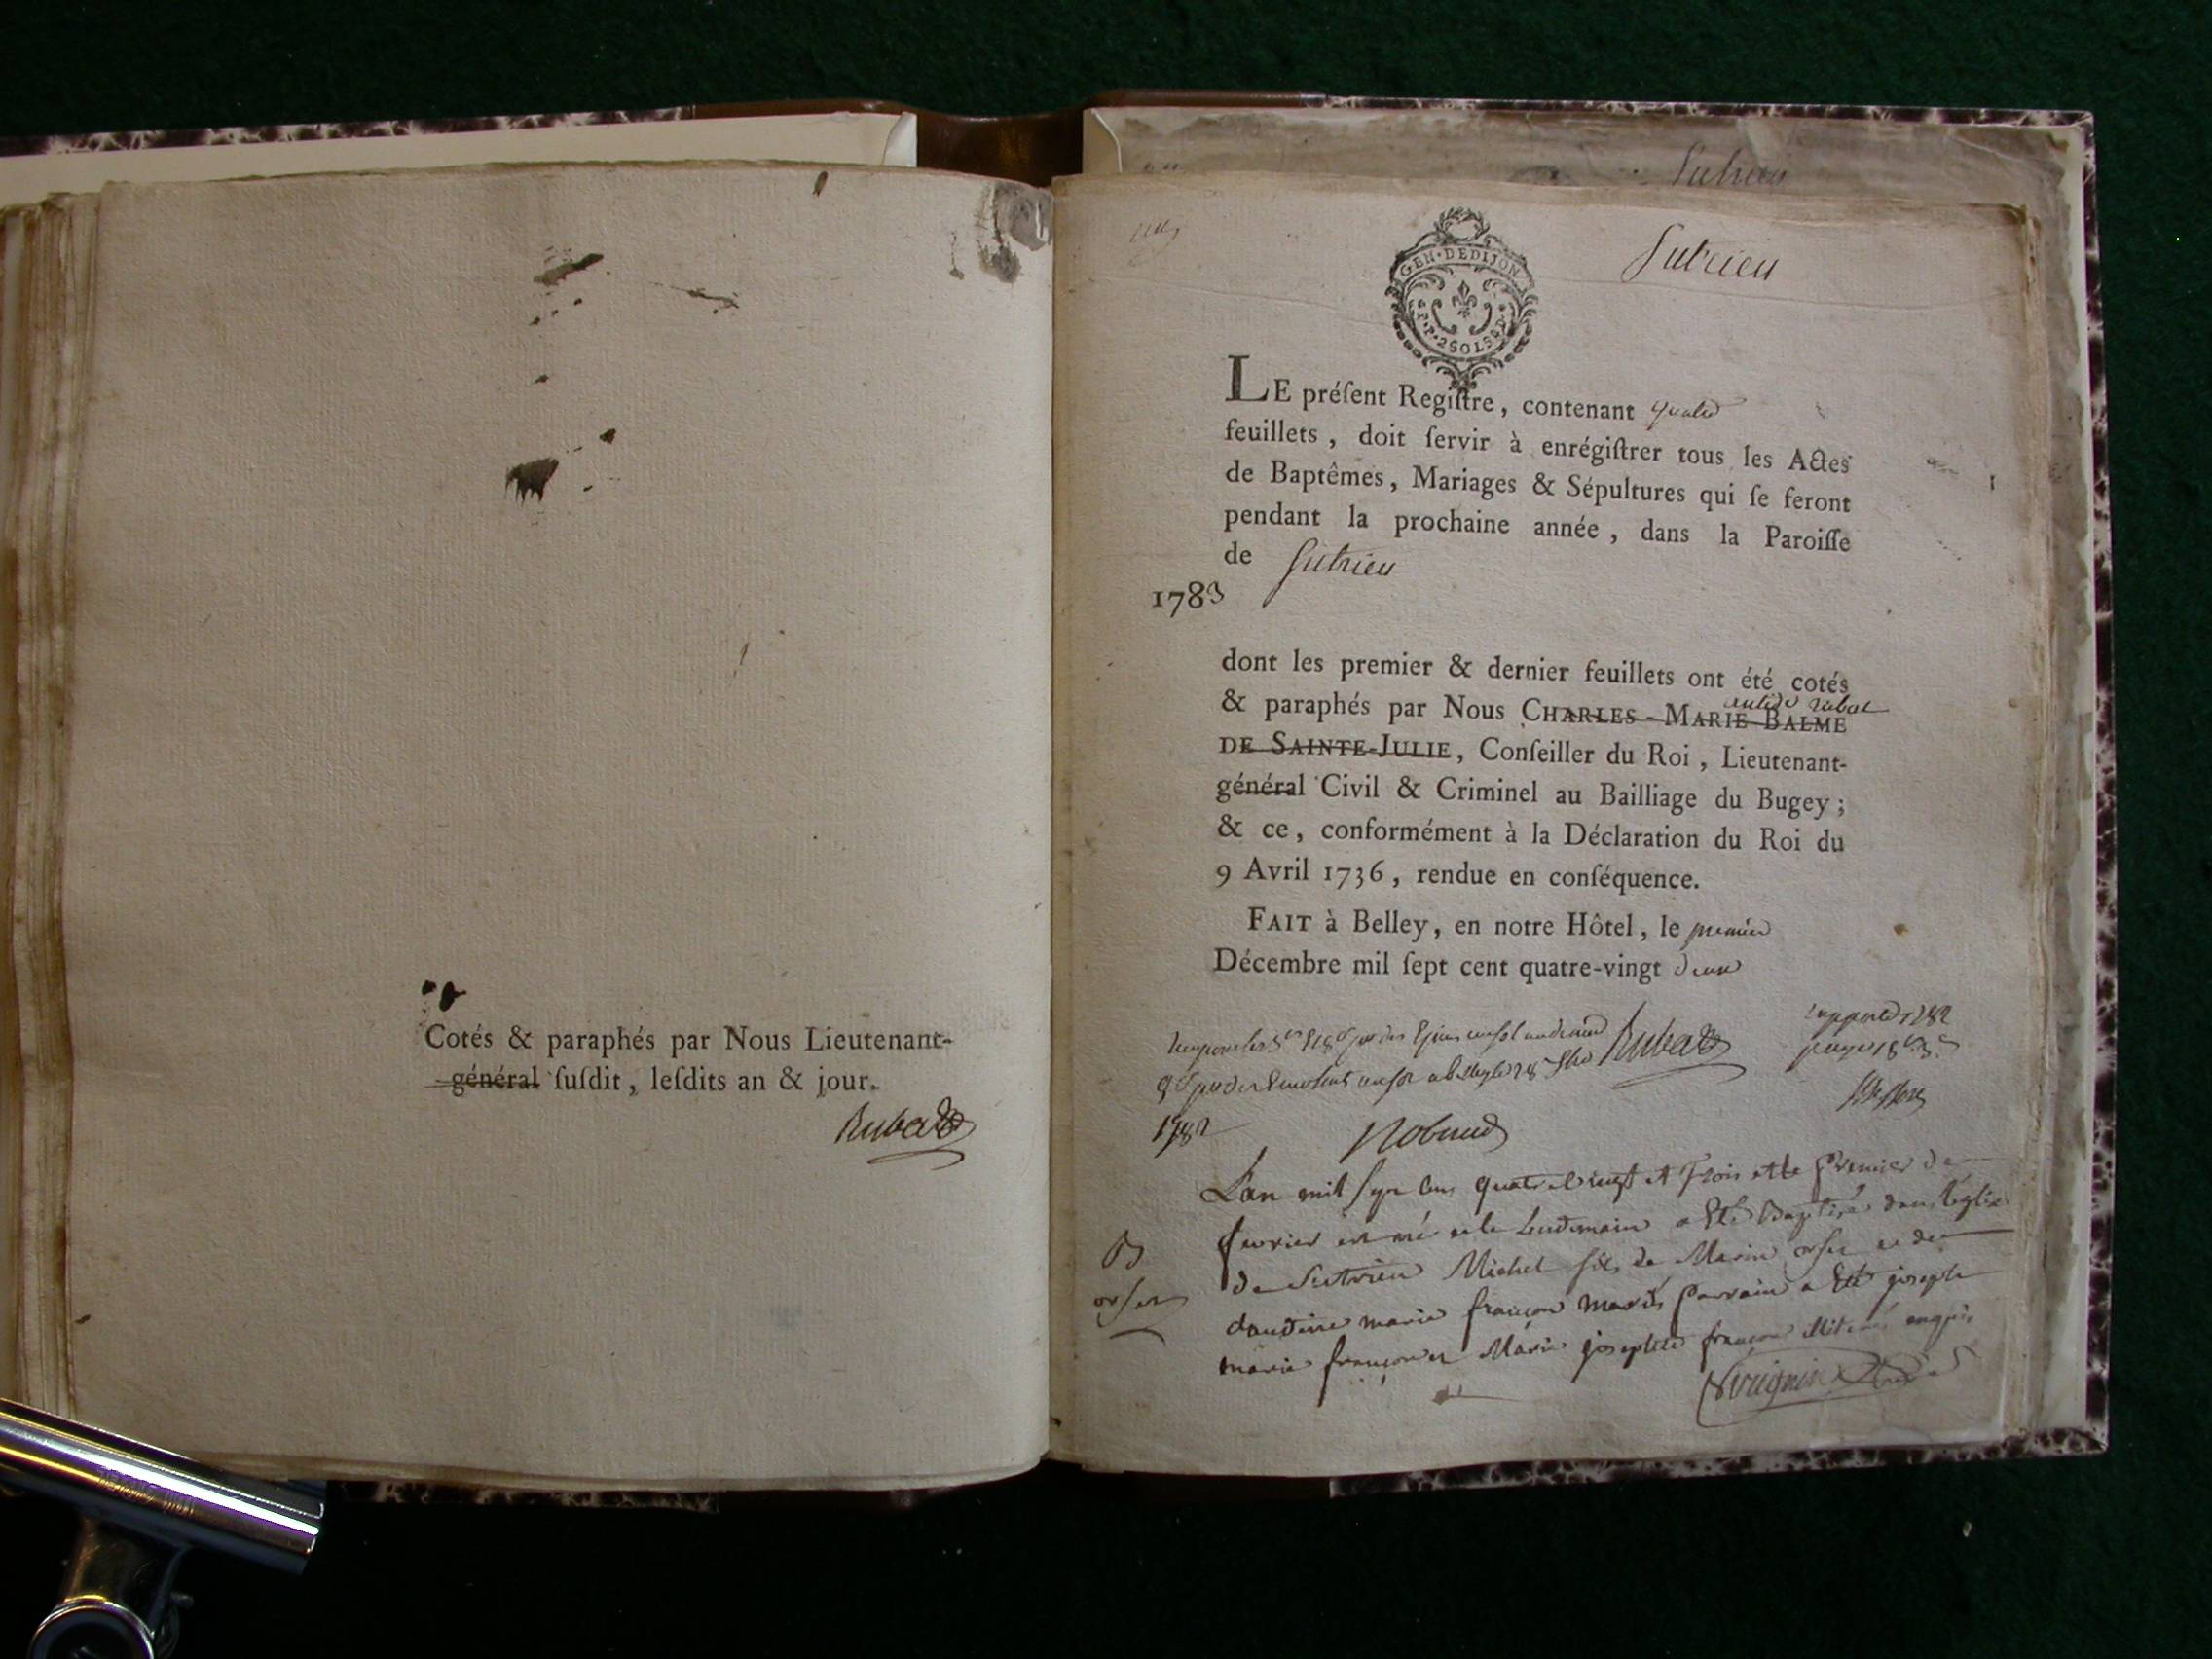 Cotés & paraphés par Nous Lieutenant-
général ſuſdit, leſdits an & jour.
Rubat
Sutrieu
Sutrieu
GEN·DEDIJON
2SOLS
LE préſent Regiſtre, contenant quatre
feuillets, doit ſervir à enrégiſtrer tous les Actes
de Baptêmes, Mariages & Sépultures qui ſe feront
pendant la prochaine année, dans la Paroiſſe
de Sutrieu
1783
dont les premier & dernier feuillets ont été cotés
& paraphés par Nous CHARLES-MARIE BALME
rubat
DE SAINTE-JULIE, Conſeiller du Roi, Lieutenant-
général Civil & Criminel au Bailliage du Bugey;
& ce, conformément à la Déclaration du Roi du
9 Avril 1736, rendue en conſéquence.
FAIT à Belley, en notre Hôtel, le premier
Décembre mil ſept cent quatre-vingt deux
Rubat
1782
L'an mil sept cens quatre vingt et trois et le premier de
fevrier est né et le lendemain a Eté Baptisé dans l'église
B
de Sutrieu Michel fils de Marin orset et de
orset
claudine marie françon mariés parrain a Eté joseph
marie françon et Marie josephte françon illiterés enquis